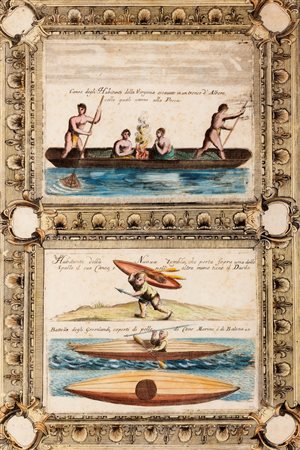 Canoa degli Habitanti della Virginia scavato in un tronco d'Albero,
colle quali vanno alla Pesca
Habitante della Nuova Zembla, che porta sopra una delle
Spalle il suo Canoa, e nell' altra mano tiene il Dardo
Battello degli Groenlandi, coperti di pelle di Cane Marino, ò di Balena